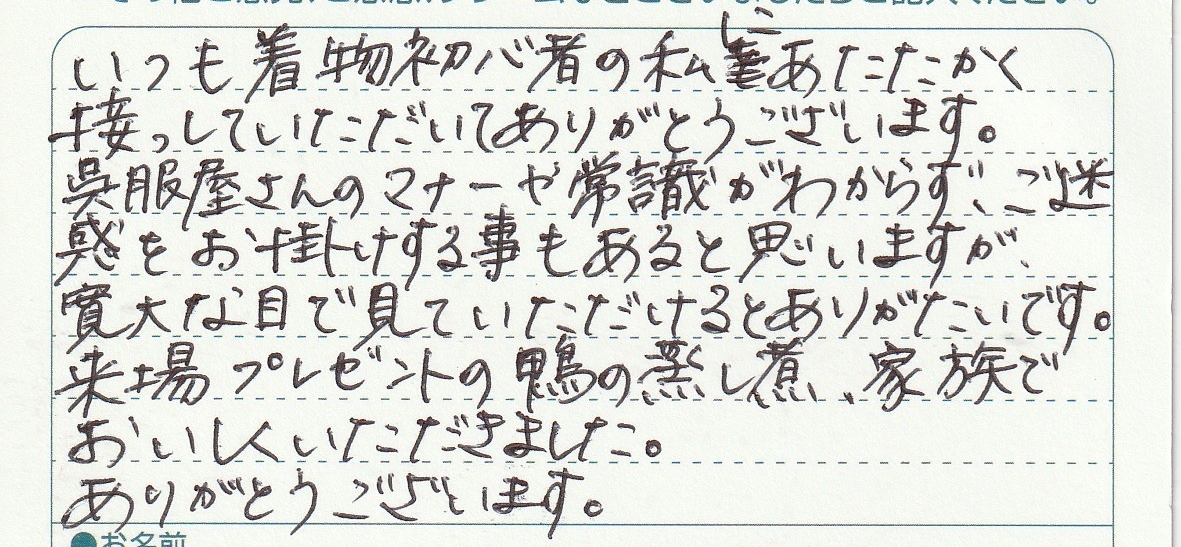 いつも着物初心者の私にあたたかく
接っしていただいてありがとうございます。
呉服屋さんのマナーや常識がわからず、ご迷
惑をお掛けする事もあると思いますが、
寛大な目で見ていただけるとありがたいです。
来場プレゼントの鴨の蒸し煮、家族で
おいしくいただきました。
ありがとうございます。
●お名前